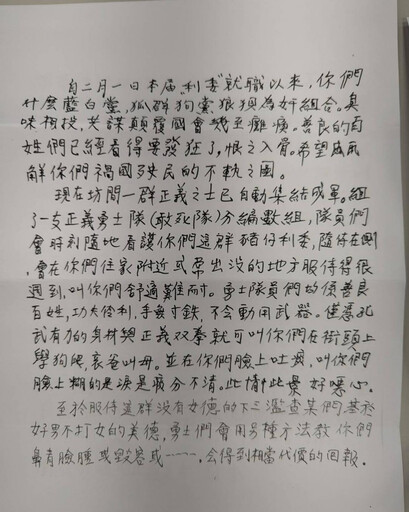 自二月一日本屆"利委"就職以來,你們
什麼藍白黨,狐群狗黨狼狽為奸組合。臭
味相投,共謀顛覆國會幾至癱瘓。善良的百
姓們已經看得要發狂了,恨之入骨。希望
解你們禍國殃民的不軌之圖。
現在坊間一群正義之士已自動集結成軍。組
了一支正義勇士隊(敢死隊)分編數組,隊員們
會時刻隨地看護你們這群豬仔利委,隨侍在側
,會在你們住家附近或常出沒的地方服侍得很
週到,叫你們舒適難耐。勇士隊員們均係善良
百姓,功夫俐利,手無寸鐵,不會動用武器。僅憑孔
武有力的身材與正義双拳就可叫你們在街頭上
學狗爬,哀爸叫母。並在你們臉上吐
臉上糊的是淚是 分不清。此情此景好噁心。
至於服侍這群沒有女德的下三濫查某們基於
好男不打女的美德,勇士們會用另種方法教你們
鼻青臉腫或毀容或……,会得到相當代價的回報.